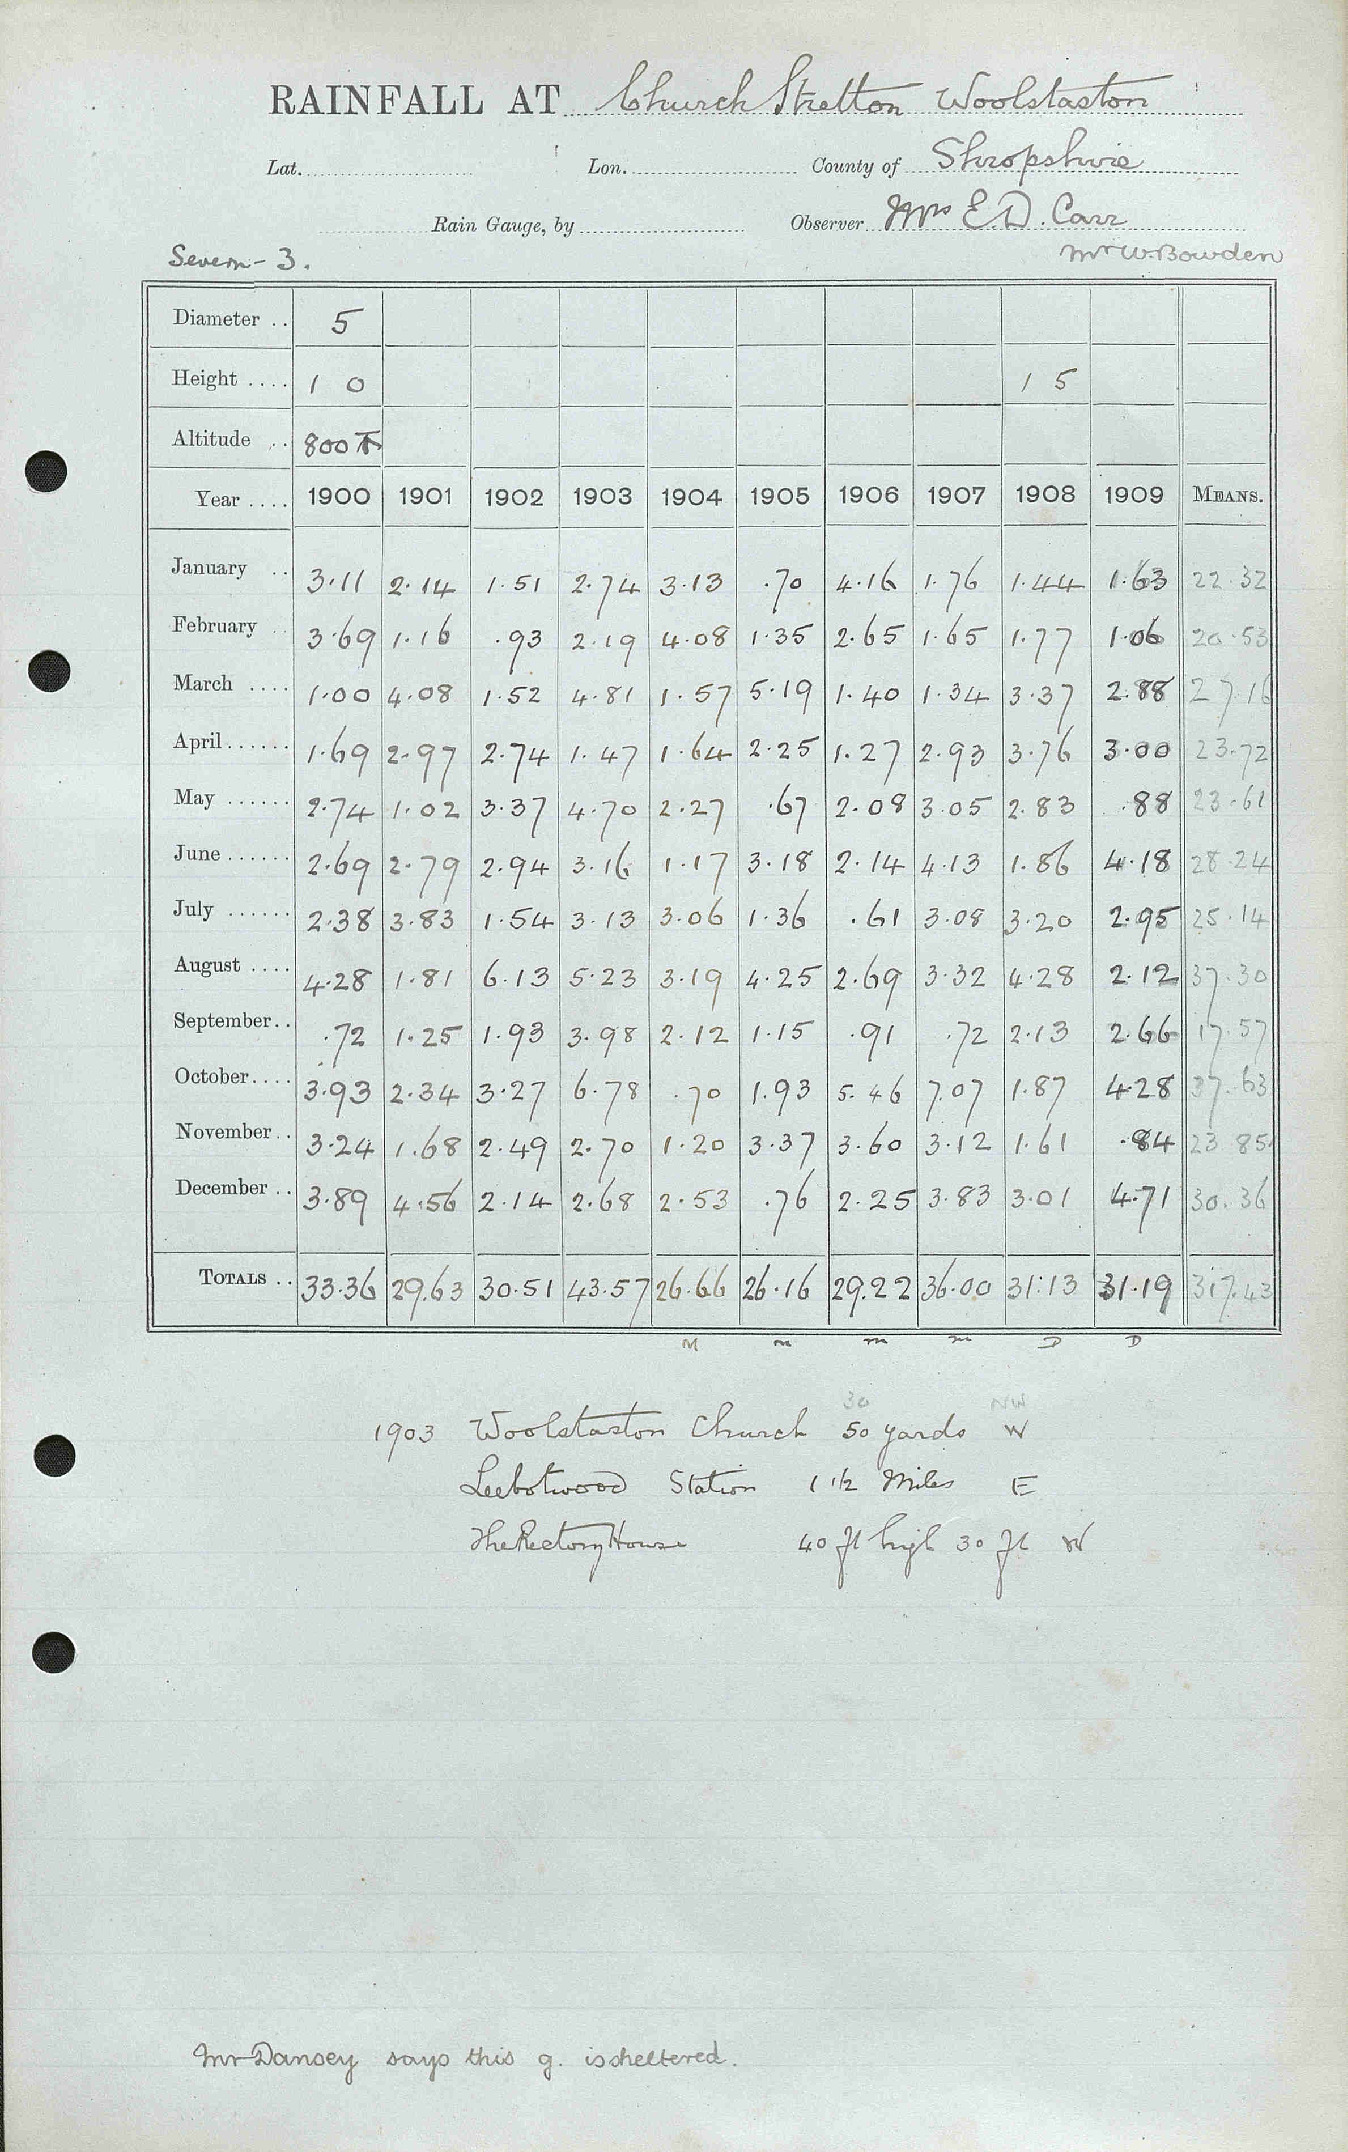 RAINFALL AT Church Stretton Woolstaston
Lat. Lon. County of Shropshire
Rain Gauge, by Observer Mrs E.D. Carr
Severn - 3. Mr W. Bowden
Diameter .. 5
Height .... 1 0 1 5
Altitude .. 800 T
Year .... 1900 1901 1902 1903 1904 1905 1906 1907 1908 1909 MEANS.
January .. 3.11 2.14 1.51 2.74 3.13 .70 4.16 1.76 1.44 1.63 22.32
February .. 3.69 1.16 .93 2.19 4.08 1.35 2.65 1.65 1.77 1.06 20.53
March .... 1.00 4.08 1.52 4.81 1.57 5.19 1.40 1.34 3.37 2.88 27.16
April...... 1.69 2.97 2.74 1.47 1.64 2.25 1.27 2.93 3.76 3.00 23.72
May ...... 2.74 1.02 3.37 4.70 2.27 .67 2.08 3.05 2.83 .88 23.61
June...... 2.69 2.79 2.94 3.16 1.17 3.18 2.14 4.13 1.86 4.18 28.24
July ...... 2.38 3.83 1.54 3.13 3.06 1.36 .61 3.08 3.20 2.95 25.14
August .... 4.28 1.81 6.13 5.23 3.19 4.25 2.69 3.32 4.28 2.12 37.30
September.. .72 1.25 1.93 3.98 2.12 1.15 .91 .72 2.13 2.66 17.57
October.... 3.93 2.34 3.27 6.78 .70 1.93 5.46 7.07 1.87 4.28 37.63
November.. 3.24 1.68 2.49 2.70 1.20 3.37 3.60 3.12 1.61 .84 23.85
December .. 3.89 4.56 2.14 2.68 2.53 .76 2.25 3.83 3.01 4.71 30.36
TOTALS .. 33.36 29.63 30.51 43.57 26.66 26.16 29.22 36.00 31.13 31.19 317.43
M m m m D D
30 NW
1903 Woolstaston Church 50 yards W
Leebotwood Station 1 1/2 Miles E
The Rectory House 40 ft high 30 ft W
Mr Dansey says this g. is sheltered.